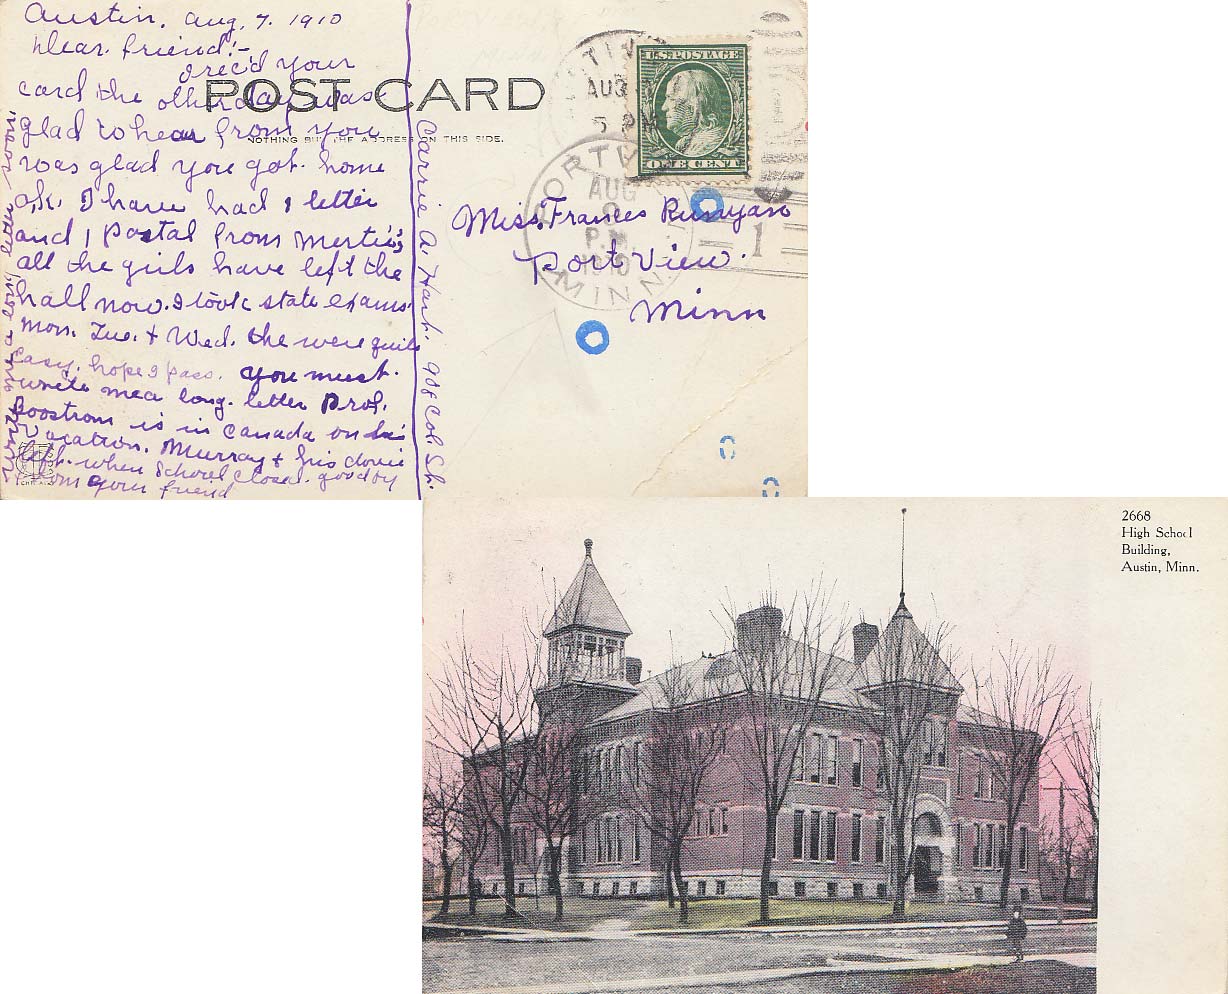 Austin, Aug, 7, 1910
Dear friend!-
I rec'd your
card the other day was
glad to hear from you
was glad you got home
o,k, I have had 1 letter
and 1 postal from Mertie;
all the girls have left the
hall now. I took state exams.
Mon. Tue. + Wed. the were quite
easy, hope I pass. you must.
write me a long letter Prof.
Boostrom is in Canada on his
Vacation. Murray + his
left. when School closed. goodby
from your friend
Carrie A. Hart. 908 Col. St.
write me a long letter soon.
POST CARD
NOTHING BUT THE ADDRESS ON THIS SIDE.
AUG
5 PM
U.S. POSTAGE
ONE CENT
AUG
P.M.
1910
MINN
1
Miss, Frances Runyan
Port View.
Minn
2668
High School
Building,
Austin, Minn.